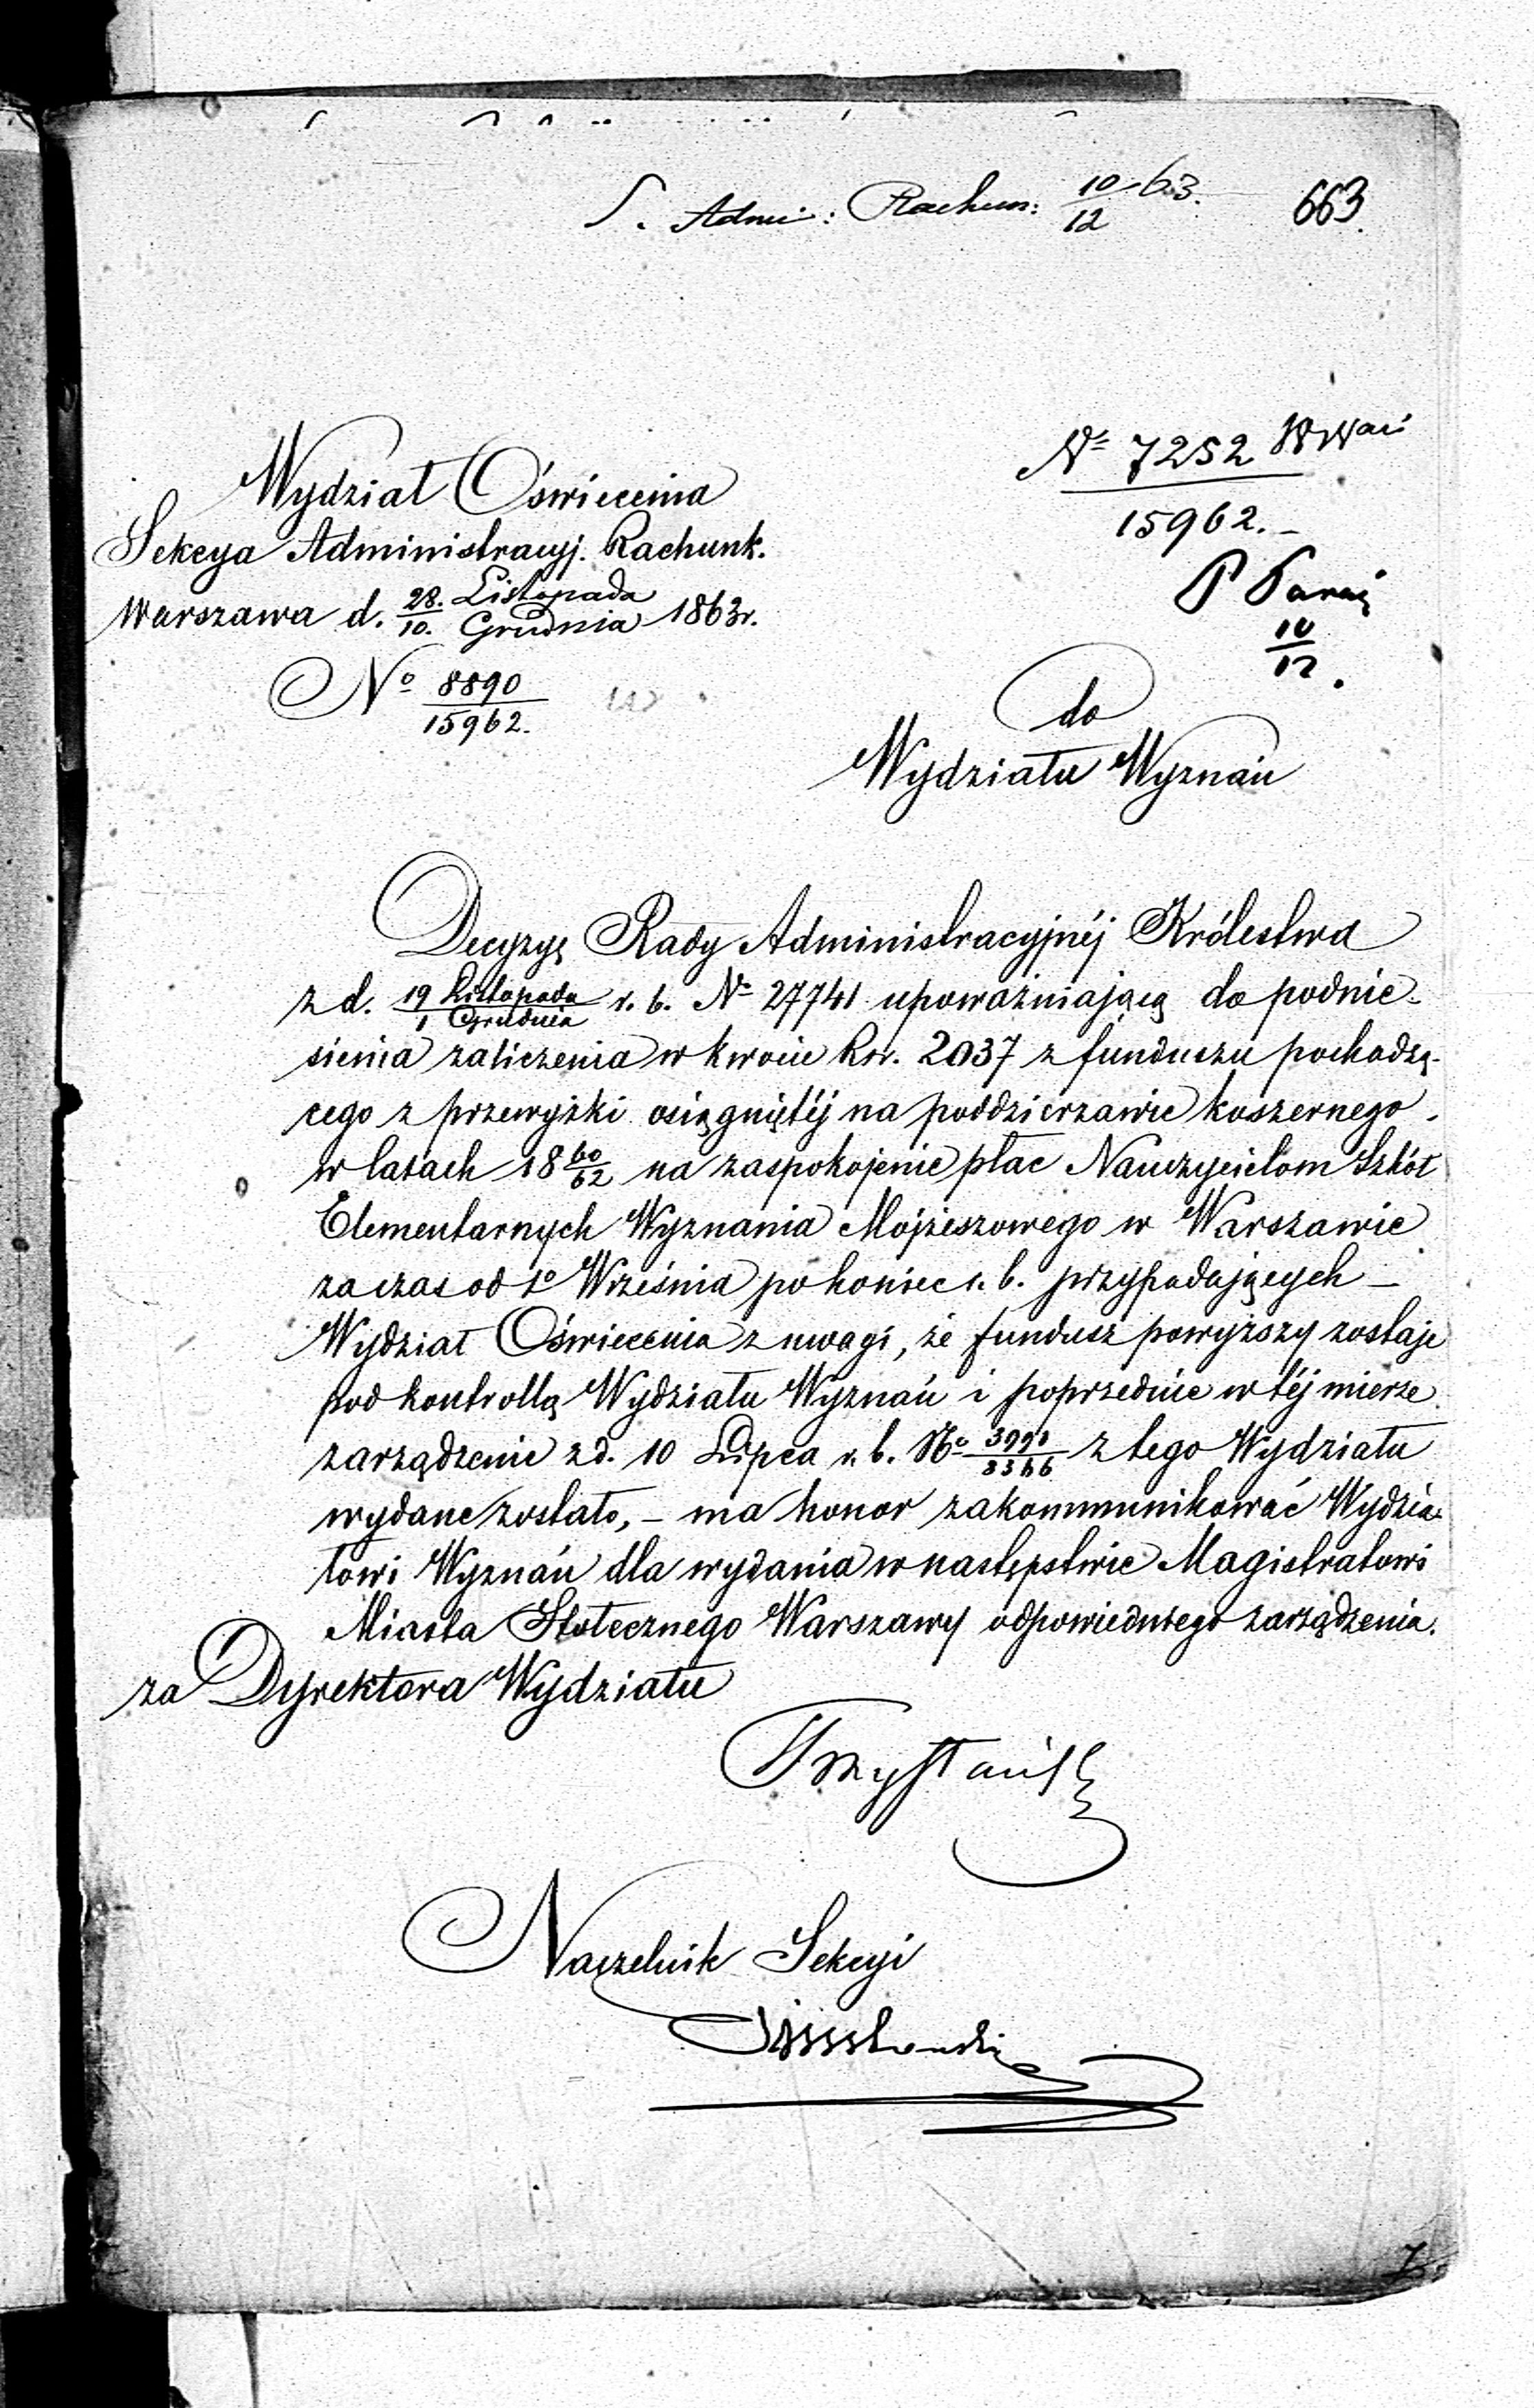 S. Admi: Rachun: 10/12 63. 663.
Nº 7252
15962.
10/12.
Wydział Oświecenia
Sekcya Administracyj. Rachunk.
Warszawa d. 28. Listopada / 10. Grudnia 1863r.
Nº 8890/15962.
do
Wydziału Wyznań
Decyzyę Rady Administracyjnéj Królestwa
z d. 19 Listopada / 1 Grudnia r. b. Nº 27741 upoważniającą do podnie-
sienia zaliczenia w kwocie Rsr. 2037 z funduszu pochodzą-
cego z przewyżki osiągniętéj na poddzierzawie koszernego
w latach 18 60/62 na zaspokojenie płac Nauczycielom Szkół
Elementarnych Wyznania Mojżeszowego w Warszawie
za czas od 1º Września po koniec r. b. przypadających –
Wydział Oświecenia z uwagi, że fundusz powyższy zostaje
pod kontrollą Wydziału Wyznań i poprzednie w téj mierze
zarządzenie z d. 10 Lipca r. b. Nº z tego Wydziału
wydane zostało, – ma honor zakommunikować Wydzia-
łowi Wyznań dla wydania w następstwie Magistratowi
Miasta Stołecznego Warszawy odpowiedniego zarządzenia.
za Dyrektora Wydziału
Naczelnik Sekcyi